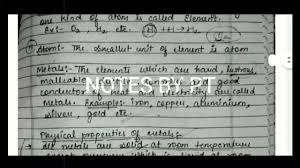 one kind of atom is called Element.
Ex:- O₂, H₂ etc. H +H → H₂
Atom:- The smallest unit of element is atom
Metals:- The elements which are hard, lustrous,
malleable, good
NOTES BY PT
conductor of heat & electricity are called
metals. Example:- iron, copper, aluminium,
silver, gold etc.
Physical properties of metals:-
All metals are solid at room temperature